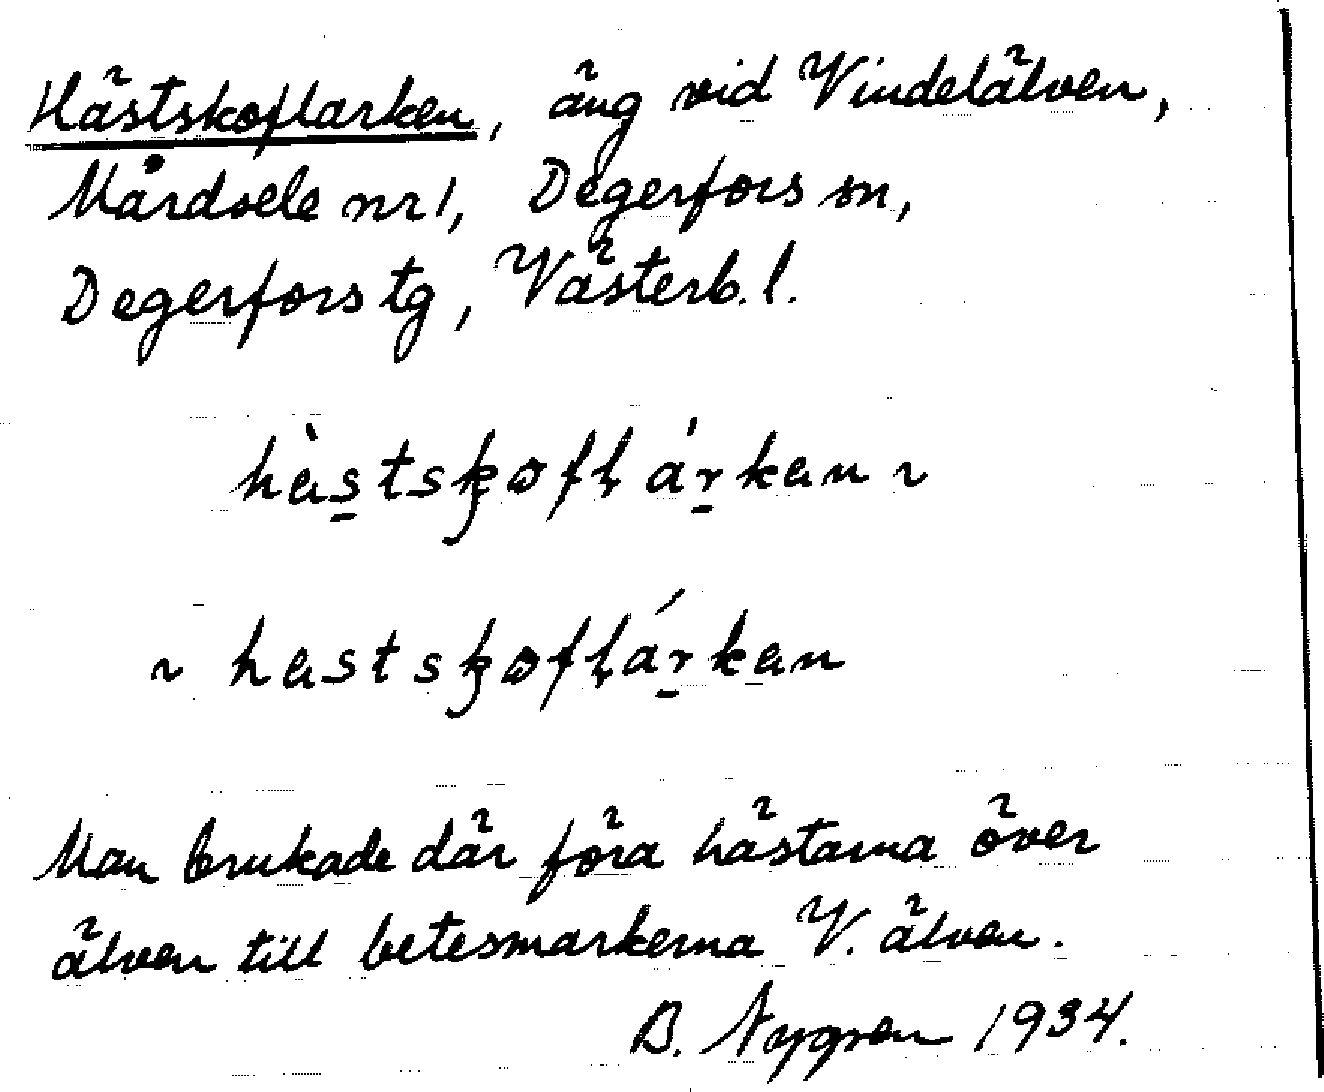 Hästskoflarken, äng vid Vindelälven,
Mårdsele nr 1, Degerfors sn,
Degerfors tg, Västerb. l.
hàs̠tsk̡oflá̠rkan ~
~ hastsk̡oflár̠kan
Man brukade där föra hästarna över
älven till betesmarkerna V. älven.
B. Nygren 1934.